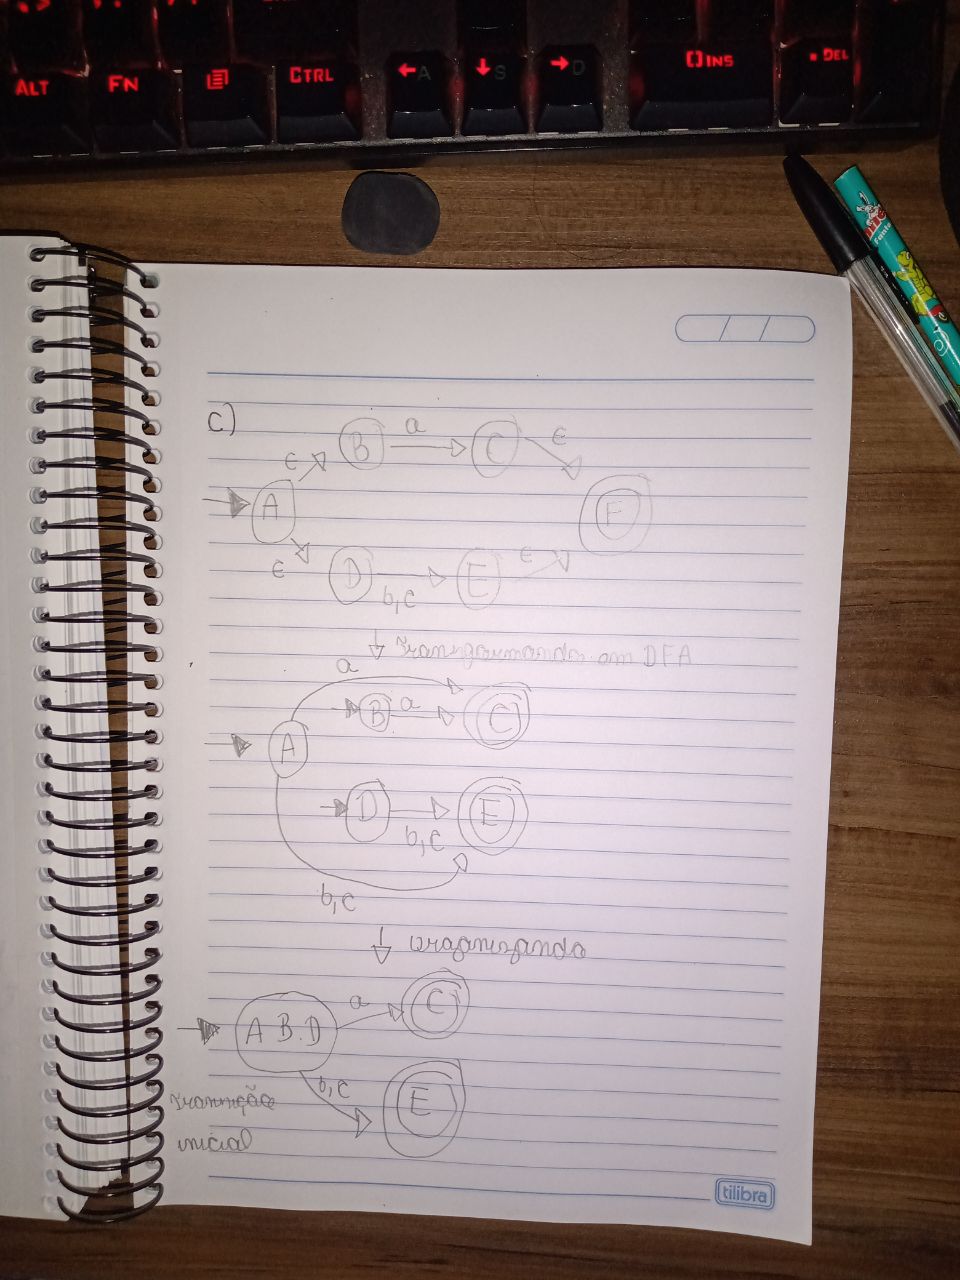 ALT FN CTRL ←A ↓S →D INS DEL
c)
B a C
ε ε
A F
ε D b,c E ε
↓ Transformando em DFA
a
B a C
A
D b,c E
b,c
↓ organizando
A B.D a C
b,c E
inicial
tilibra